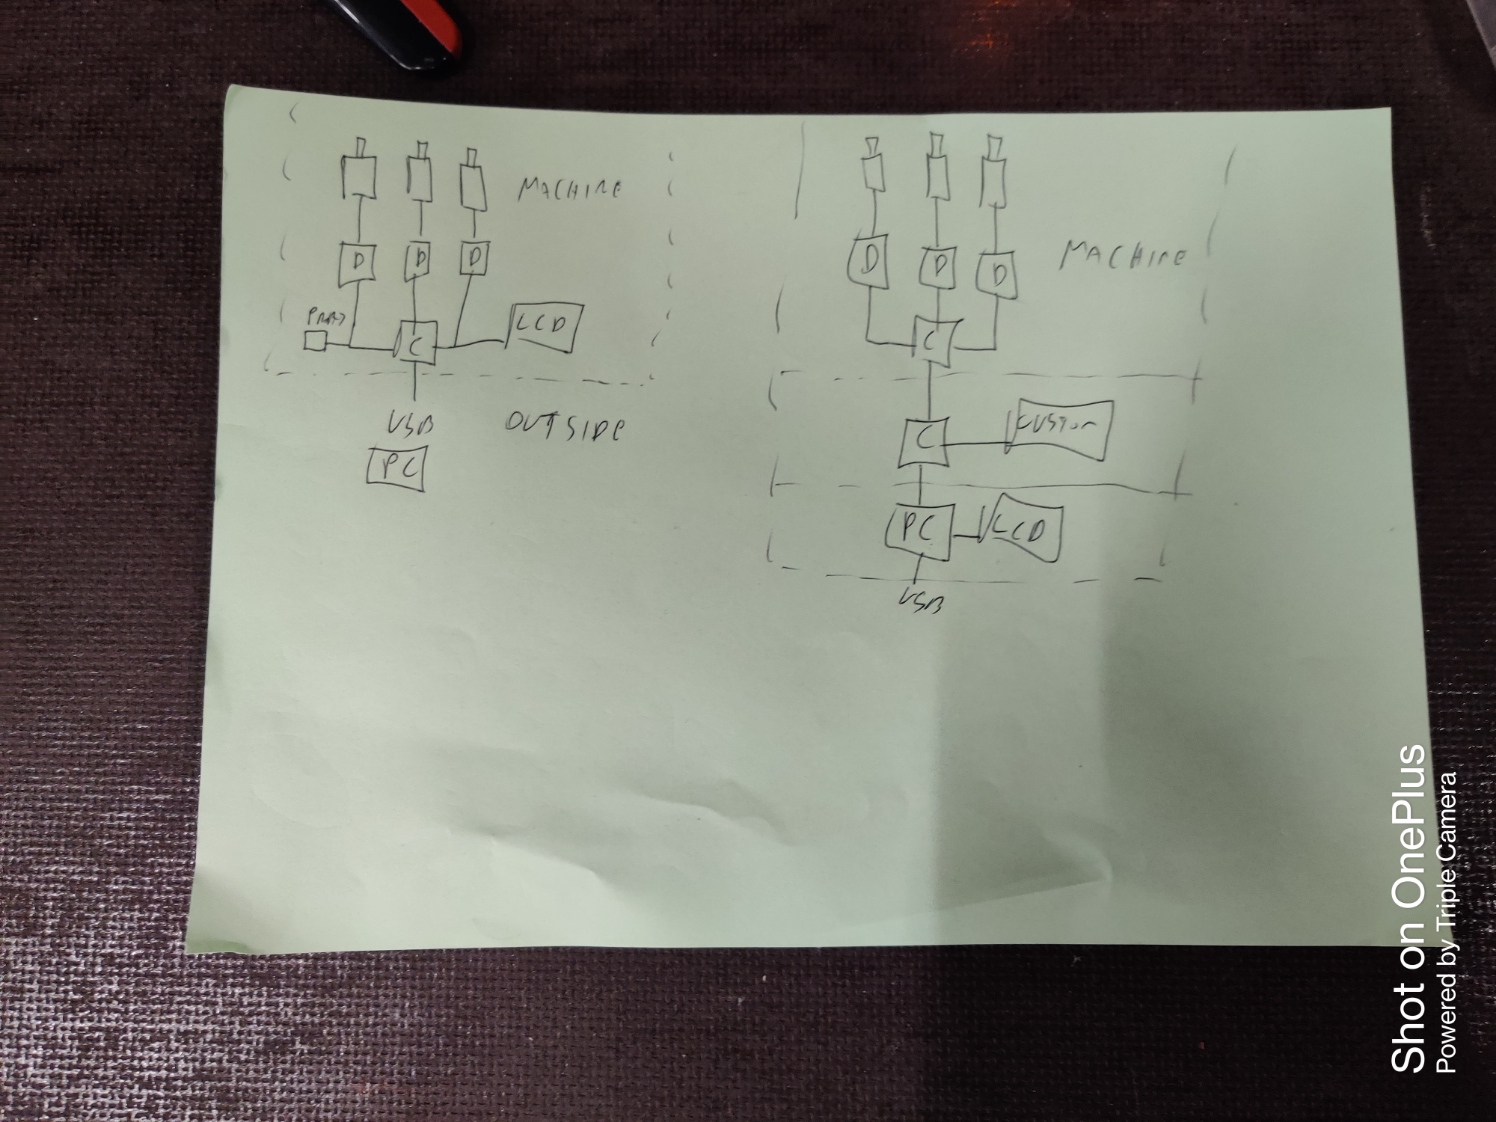 MACHINE
D
D
D
C
LCD
USB
OUTSIDE
PC
MACHINE
D
D
D
C
C
CUSTOM
PC
LCD
USB
Shot on OnePlus
Powered by Triple Camera